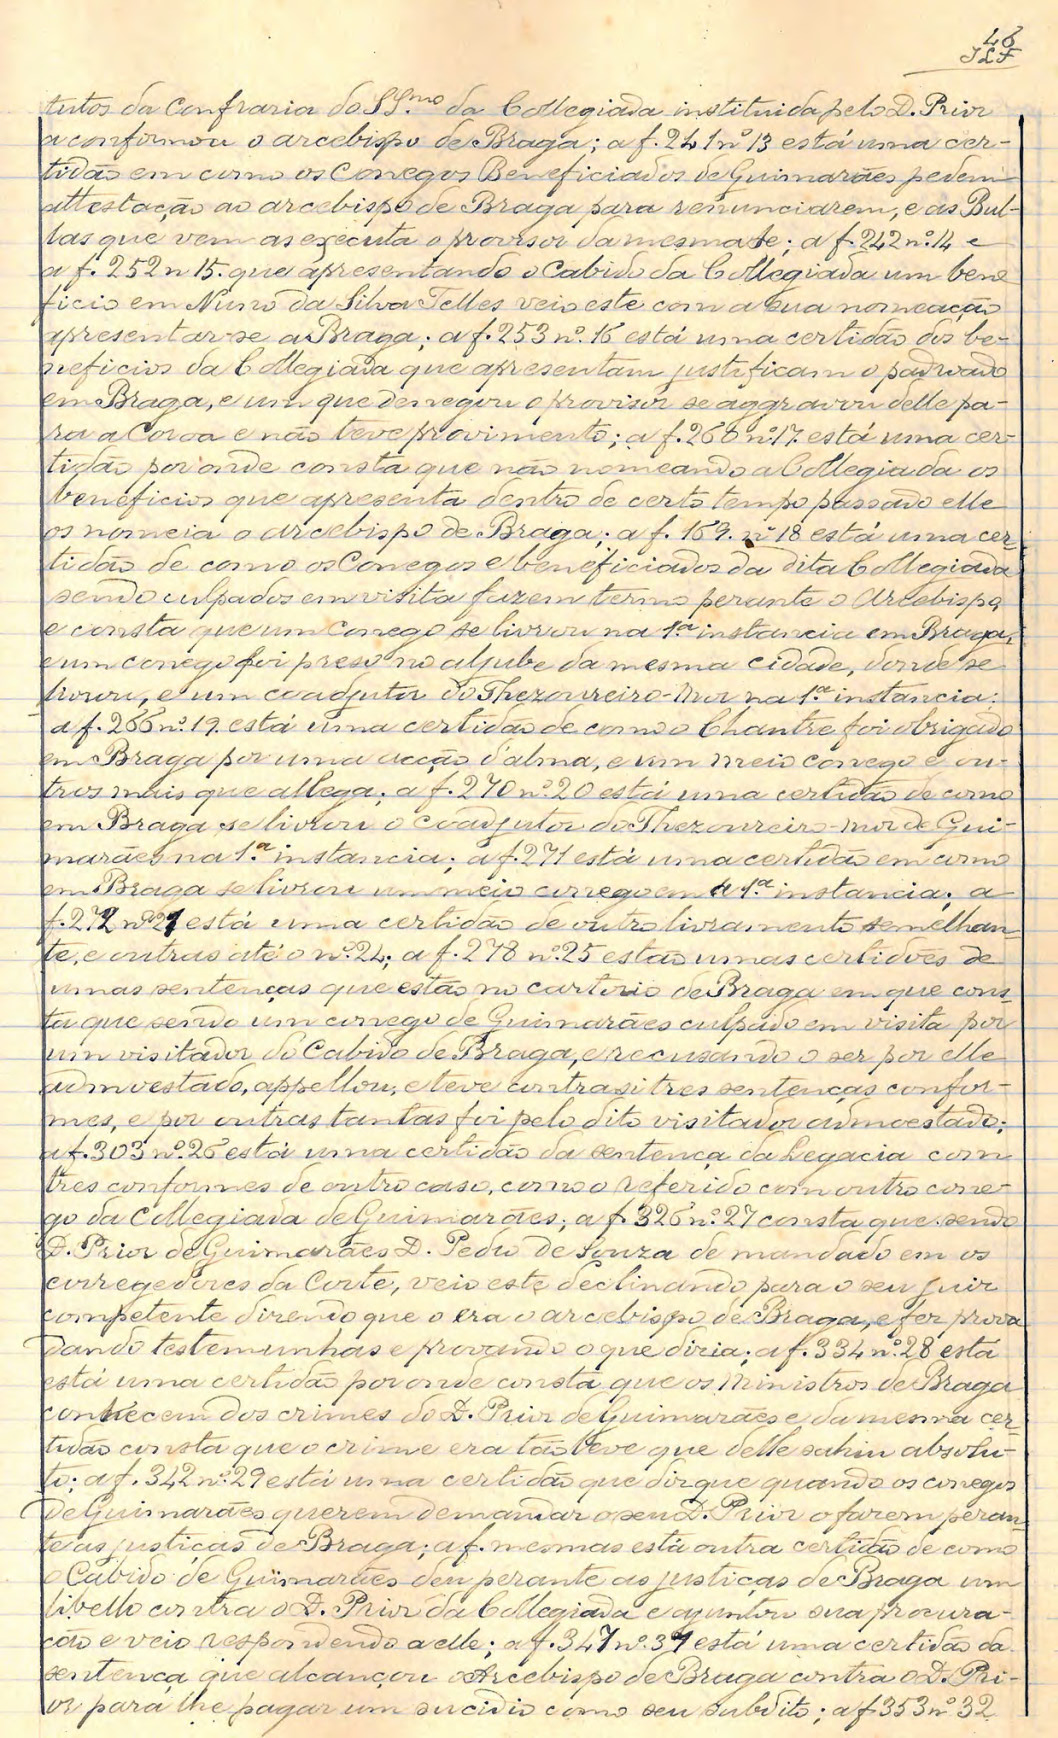 48
JLF
tutos da Confraria do SS.mo da Collegiada instituida pelo D. Prior
a confirmou o arcebispo de Braga; a f. 241 nº 13 está uma cer-
tidão em como os Conegos Beneficiados de Guimarães pedem
attestação ao arcebispo de Braga para renunciarem, e as Bul-
las que vem as executa o provisor da mesma Sé; a f. 242 nº. 14 e
a f. 252 n 15. que apresentando o Cabido da Collegiada um bene
ficio em Nuno da Silva Telles veio este com a sua nomeação
apresentar-se a Braga; a f. 253 nº. 16 está uma certidão dos be-
neficios da Collegiada que apresentam justificam o padroado
em Braga, e um que denegou o provisor se aggravou delle pa-
ra a Coroa e não teve provimento; a f. 260 nº. 17 está uma cer-
tidão por onde consta que não nomeando a Collegiada os
beneficios que apresenta dentro de certo tempo passado elle
os nomeia o arcebispo de Braga; a f. 169. nº 18 está uma cer-
tidão de como os Conegos e beneficiados da dita Collegiada
sendo culpados em visita fazem termo perante o Arcebispo
e consta que um Conego se livrou na 1ª instancia em Braga,
e um conego foi preso no aljube da mesma cidade, donde se
livrou, e um coadjutor do Thezoureiro-Mor na 1ª instancia:
a f. 266 nº. 19. está uma certidão de como o Chantre foi obrigado
em Braga por uma acção d'alma, e um meio conego e ou-
tros mais que allega; a f. 270 nº 20 está uma certidão de como
em Braga se livrou o coadjutor do Thezoureiro-Mor de Gui-
marães na 1.ª instancia; a f. 271 está uma certidão em como
em Braga se livrou um meio conego em 1ª instancia; a
f. 272 nº 21 está uma certidão de outro livramento semelhan-
te, e outras até o nº. 24; a f. 278 nº. 25 estão umas certidões de
umas sentenças que estão no cartorio de Braga em que cons-
ta que sendo um conego de Guimarães culpado em visita por
um visitador do Cabido de Braga, e recusando o ser por elle
admoestado, appellou, e teve contra si tres sentenças confor-
mes, e por outras tantas foi pelo dito visitador admoestado;
a f. 303 nº. 26 está uma certidão da sentença da Legacia com
tres conformes de outro caso, como o referido com outro cone-
go da Collegiada de Guimarães; a f. 326 nº. 27 consta que sendo
D. Prior de Guimarães D. Pedro de Souza demandado em os
corregedores da Corte, veio este declinando para o seu juiz
competente dizendo que o era o arcebispo de Braga, e fez prova
dando testemunhas e provando o que dizia; a f. 334 nº. 28 está
está uma certidão por onde consta que os Ministros de Braga
conhecem dos crimes do D. Prior de Guimarães e da mesma cer-
tidão consta que o crime era tão leve que delle sahiu absolu-
to; a f. 342 nº. 29 está uma certidão que diz que quando os conegos
de Guimarães querem demandar o seu D. Prior o fazem peran-
te as justiças de Braga; a f. mesmas está outra certidão de como
o Cabido de Guimarães deu perante as justiças de Braga um
libello contra o D. Prior da Collegiada e ajuntou sua procura-
ção e veio respondendo a elle; a f. 347 nº. 31 está uma certidão da
sentença que alcançou o Arcebispo de Braga contra o D. Pri-
or para lhe pagar um sucidio como seu subdito; a f 353 nº 32